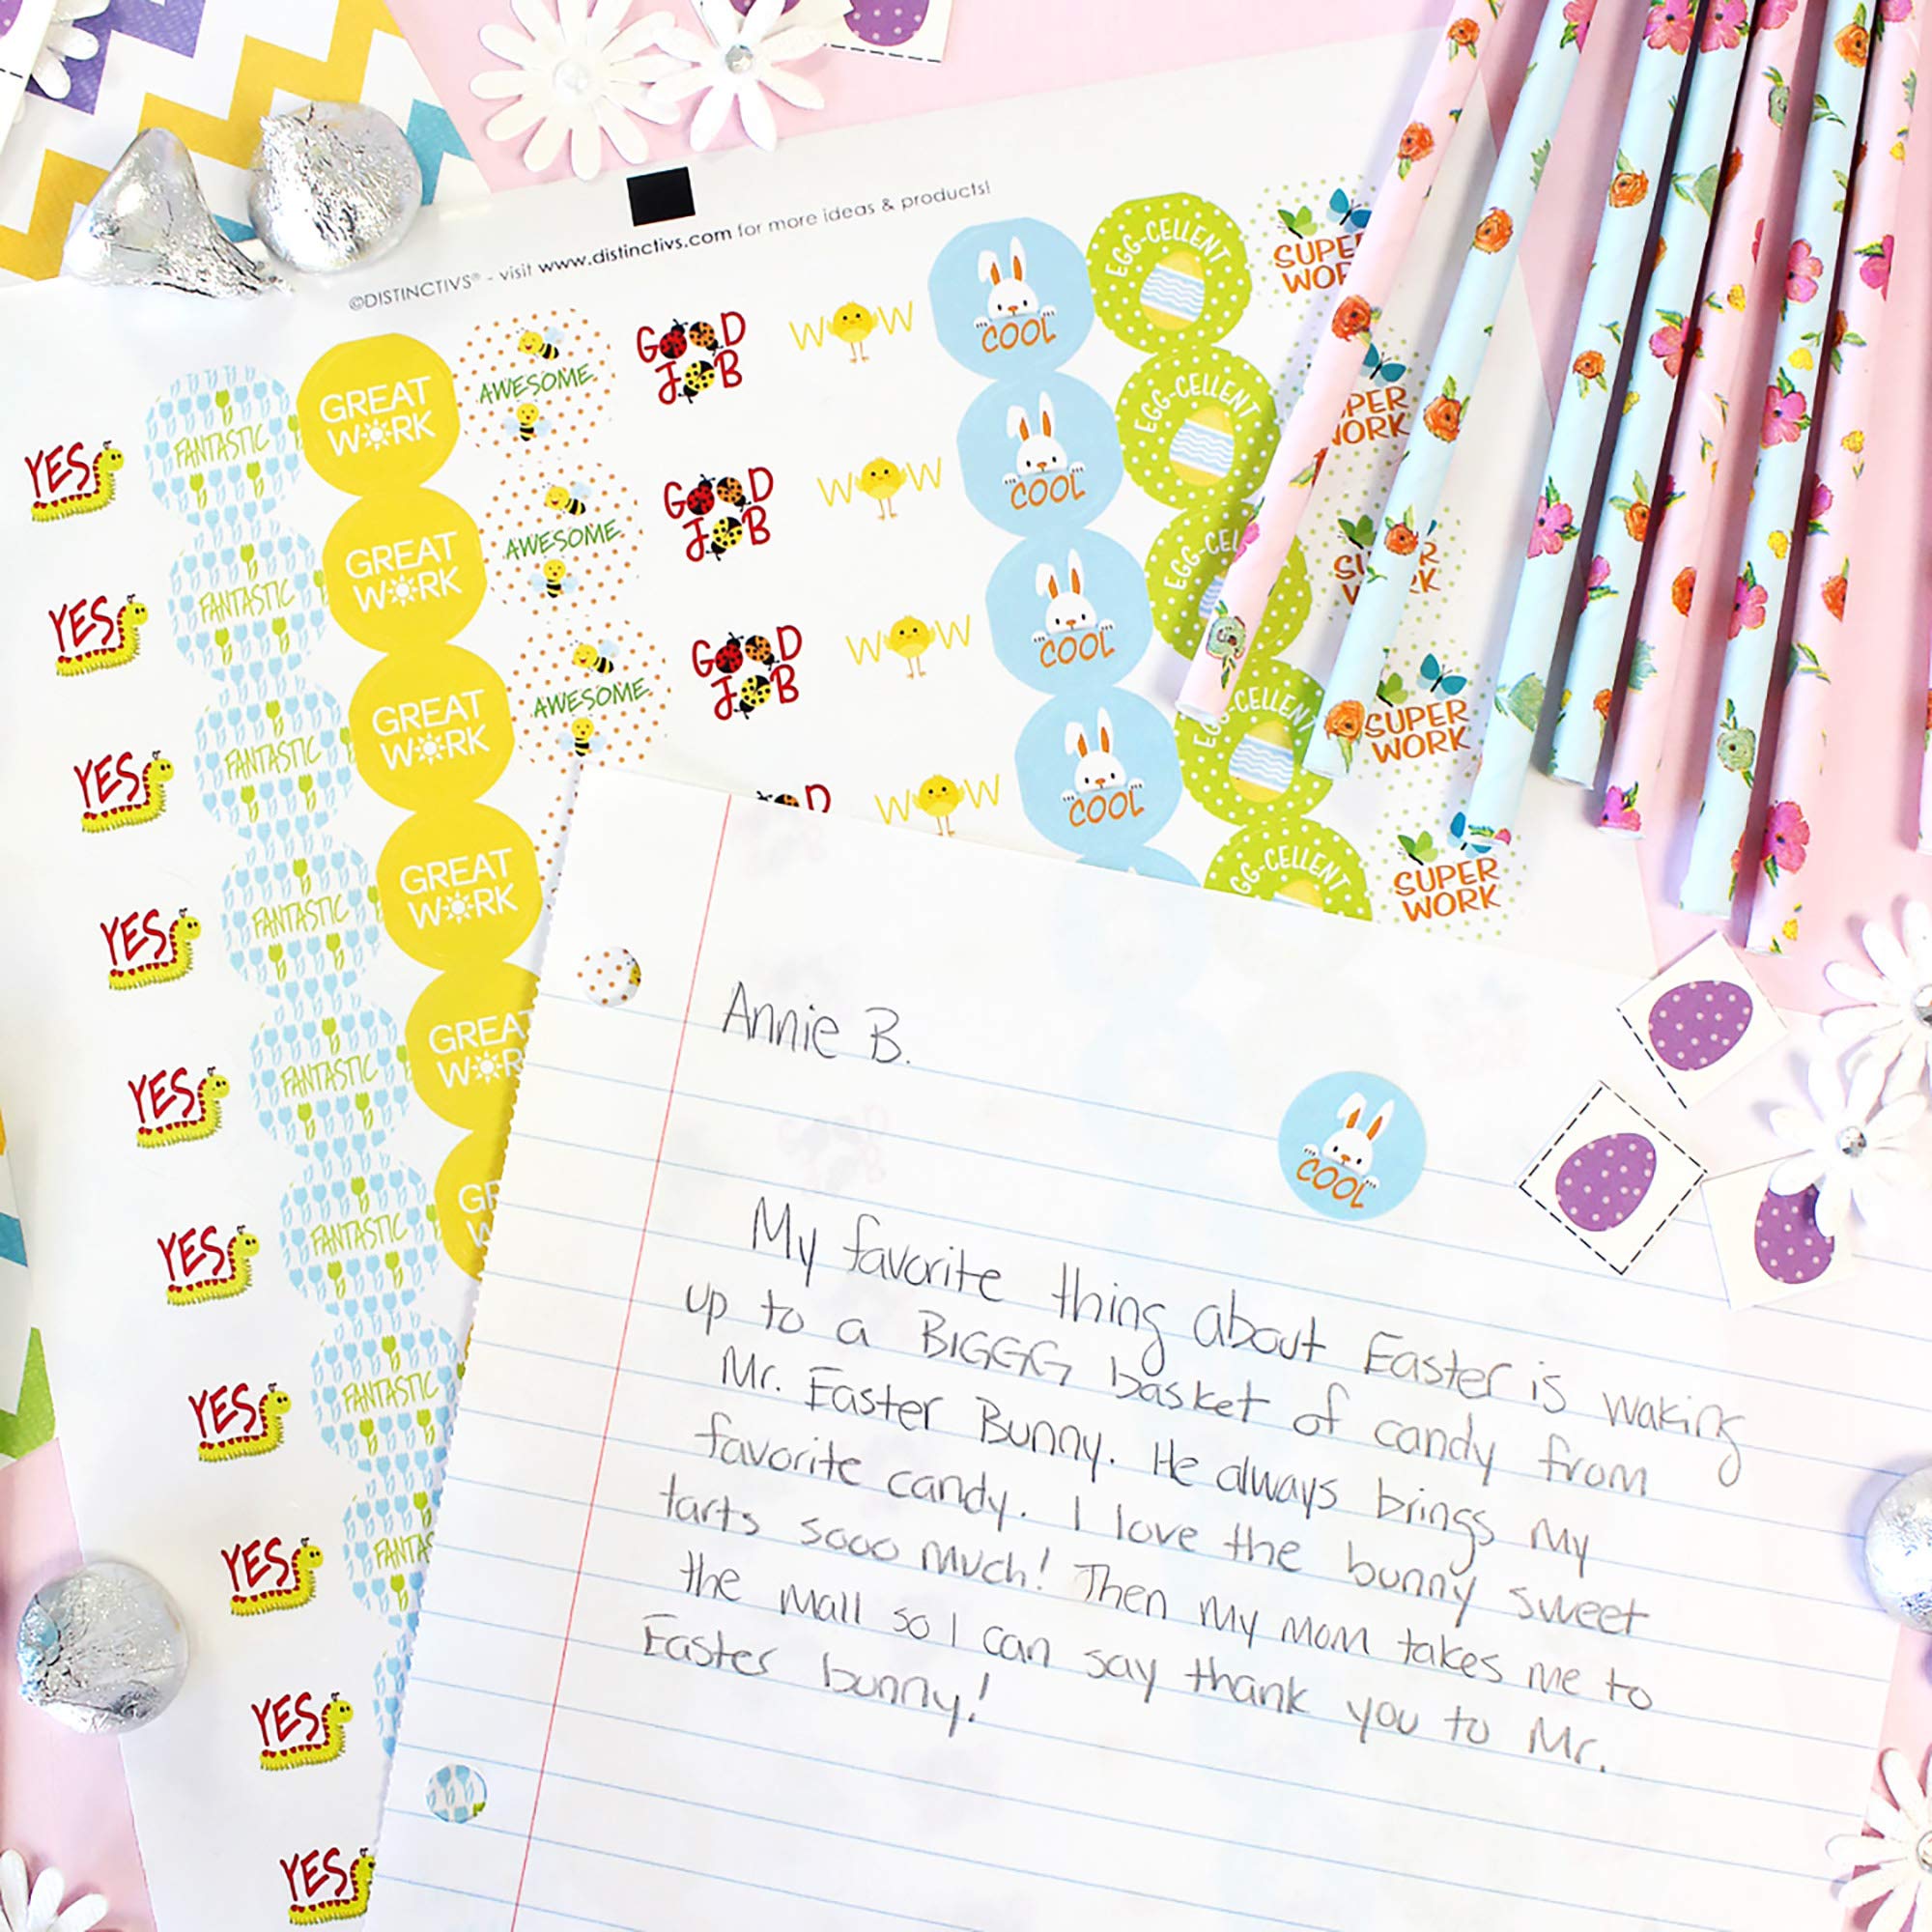 ©DISTINCTIVS® - visit www.distinctivs.com for more ideas & products!
YES
FANTASTIC
GREAT
WORK
AWESOME
GOOD
JOB
WOW
COOL
EGG-CELLENT
SUPE
WOR
YES
FANTASTIC
GREAT
WORK
AWESOME
GOOD
JOB
WOW
COOL
EGG-CELLENT
PER
WORK
YES
FANTASTIC
GREAT
WORK
AWESOME
GOOD
JOB
WOW
COOL
EGG-CEL
YES
FANTASTIC
GREAT
WORK
WOW
COOL
EGG-CELLENT
SUPER
WORK
YES
FANTASTIC
GREAT
WORK
GG-CELLENT
SUPER
WORK
YES
FANTASTIC
YES
FANTASTIC
YES
FANTAS
YES
YES
Annie B.
COOL
My favorite thing about Easter is waking
up to a BIGGG basket of candy from
Mr. Easter Bunny. He always brings my
favorite candy. I love the bunny sweet
tarts sooo much! Then my mom takes me to
the mall so I can say thank you to Mr.
Easter bunny!